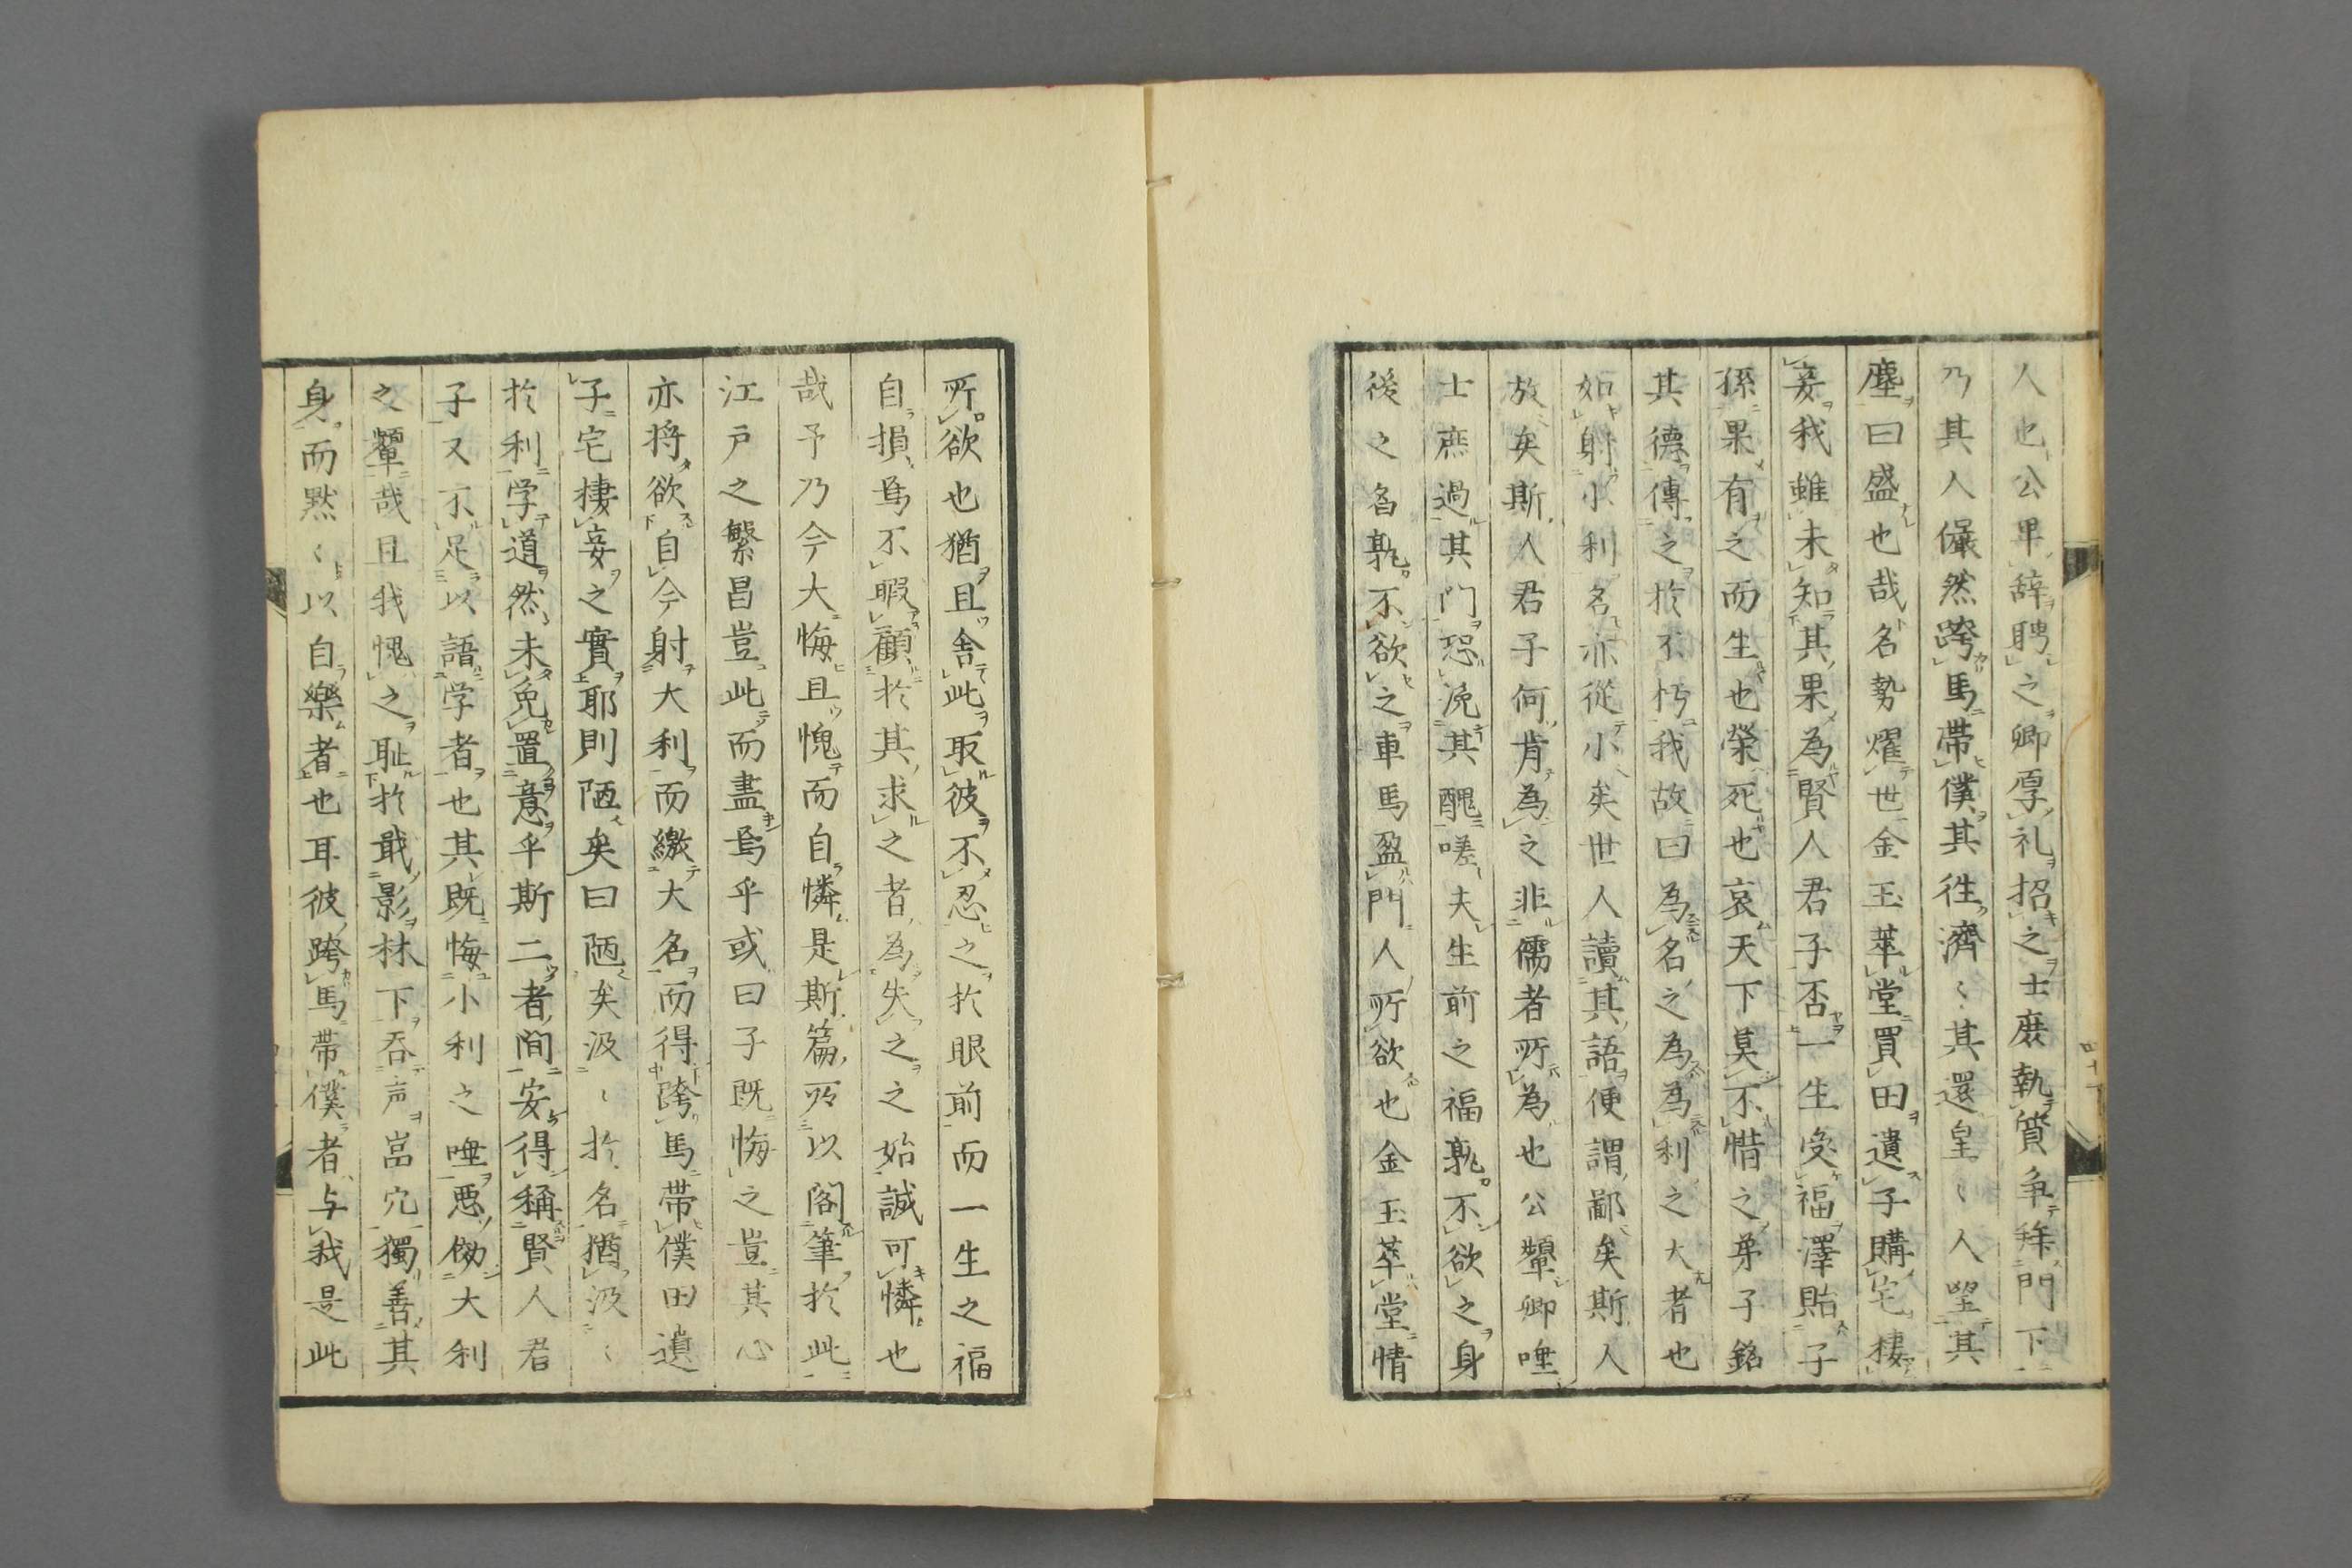 人也公卑辞聘之卿厚礼招之士庶執贄争拜門下
乃其人儼然跨馬帯僕其往濟〻其還皇〻人望其
塵曰盛也哉名勢燿世金玉萃堂買田遺子購宅棲
妾我雖未知其果為賢人君子否一生受福澤貽子
孫果有之而生也榮死也哀天下莫不惜之弟子銘
其德傳之於不朽我故曰為名之為為利之大者也
如射小利名亦從小矣世人讀其語便謂鄙矣斯人
放矣斯人君子何肯為之非儒者所為也公顰卿唾
士庶過其門恐浼其醜嗟夫生前之福孰不欲之身
後之名孰不欲之車馬盈門人所欲也金玉萃堂情
所欲也猶且舎此取彼不忍之於眼前而一生之福
自損焉不暇顧於其求之者為失之之始誠可憐也
哉予乃今大悔且愧而自憐是斯篇所以閣筆於此
江戸之繁昌豈此而盡焉乎或曰子既悔之豈其心
亦将欲自今射大利而繳大名而得跨馬帯僕田遺
子宅棲妾之實耶則陋矣曰陋矣汲〻於名猶汲〻
於利学道然未免置意乎斯二者間安得稱賢人君
子又不足以語学者也其既悔小利之唾悪傚大利
之顰哉且我愧之耻於戢影林下呑声嵓穴獨善其
身而黙〻以自樂者也耳彼跨馬帯僕者与我是此